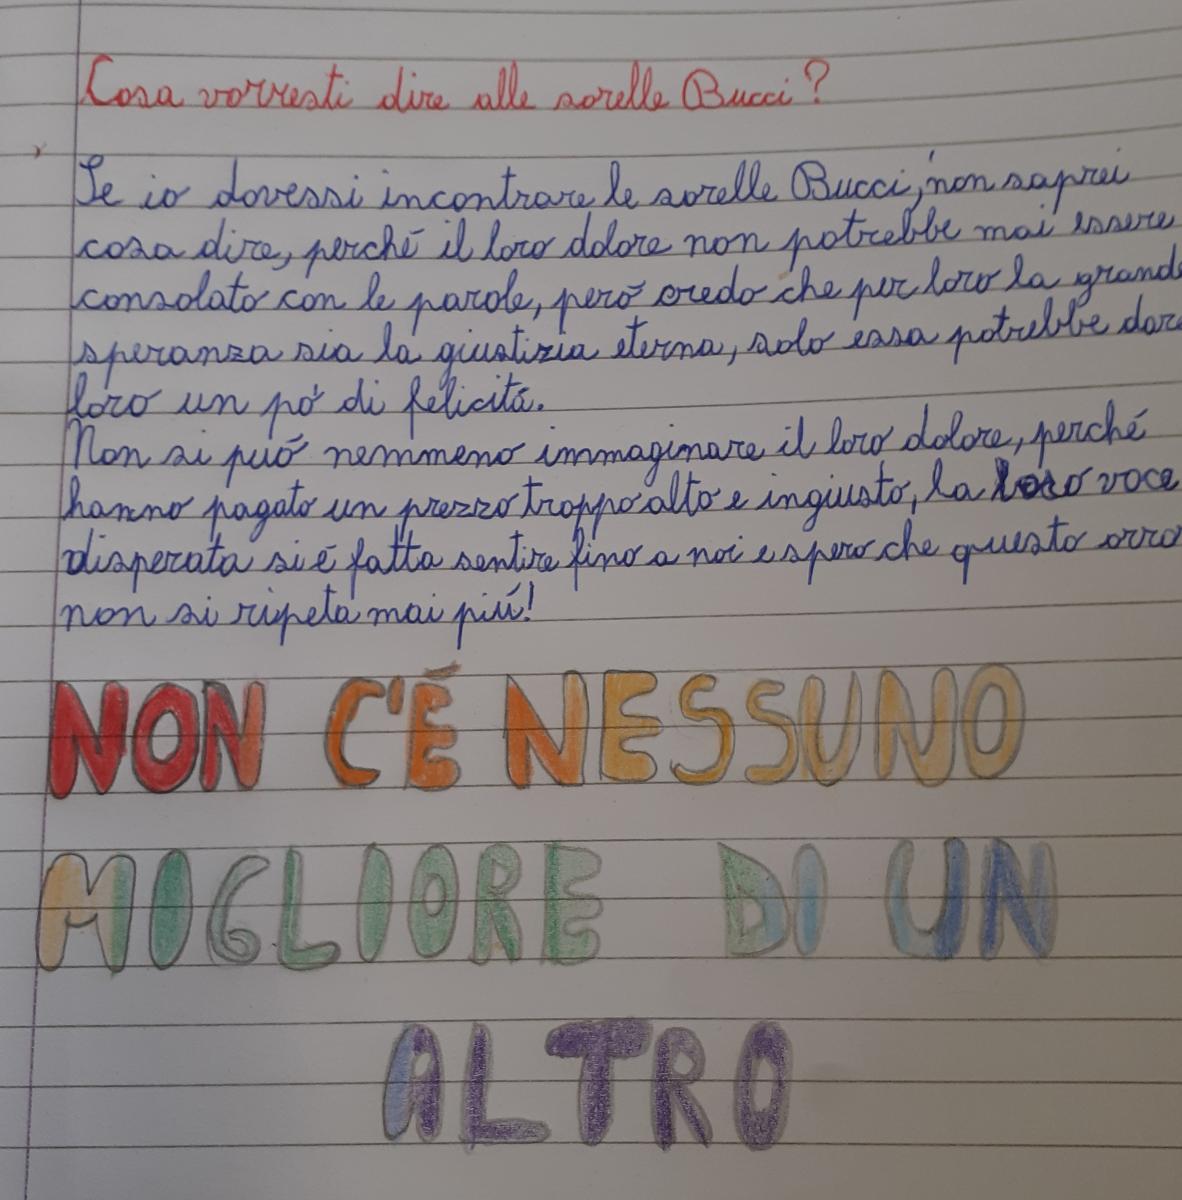 Cosa vorresti dire alle sorelle Bucci?
Se io dovessi incontrare le sorelle Bucci, non saprei
cosa dire, perché il loro dolore non potrebbe mai essere
consolato con le parole, però credo che per loro la grand
speranza sia la giustizia eterna, solo essa potrebbe dar
loro un pó di felicitá.
Non si può nemmeno immaginare il loro dolore, perché
hanno pagato un prezzo troppo alto e ingiusto, la loro voce
disperata si é fatta sentire fino a noi e spero che questo orro
non si ripeta mai più!
NON C'É NESSUNO
MIGLIORE DI UN
ALTRO